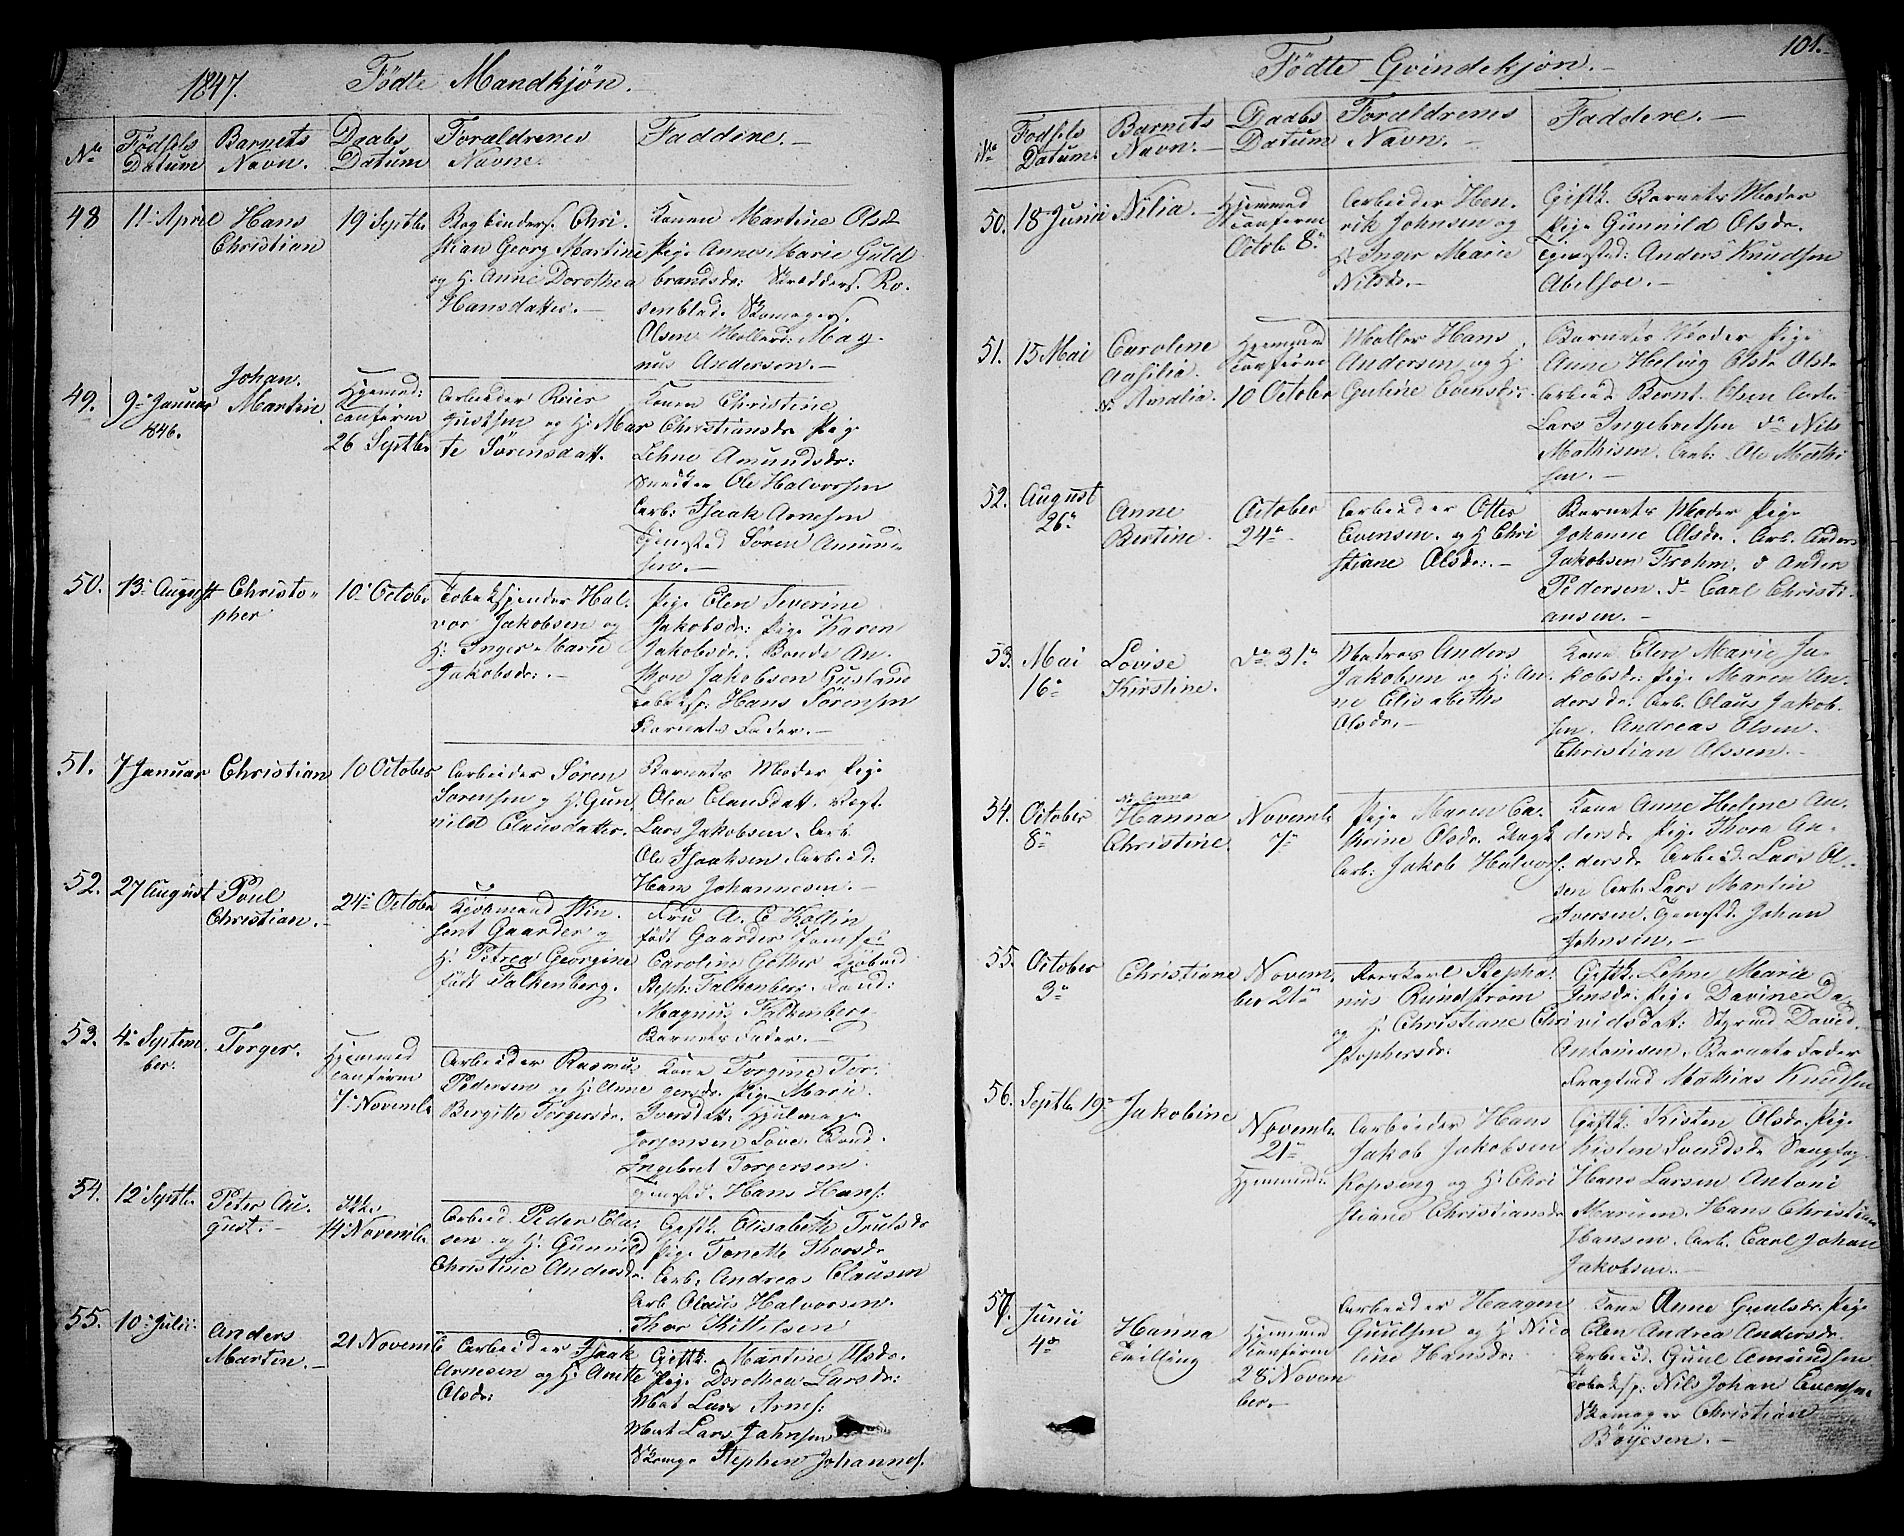 1847. Fødte Mandkjøn.
No Fødsels Datum Barnets Navn. Daabs Datum Foraldrenes Navne. Faddere. —
48 11te April Hans Christian 19 Septbr
Bogbinders. Chri-
stian Georg Martine
og H. Anne Dorothea
Hansdatter. —
Konen Martine Olsd
Pige Anne Marie Guld
brandsdr: Skrædders. Ro-
senblad. Skomagers.
Olsen Møllerd: Mag-
nus Andersen. —
49. 9de Januar 1846. Johan Martin Hjemmed: Confirm 26 Septbr
Arbeider Reier
Gustsen og H: Mar
te Sørensdatt.
Konen Christine
Christiansdr Pige
Lehne Amundsdr:
Snedker Ole Halvorsen
Arb: Isaak Arnesen
Tjenestd Søren Amund-
sen. —
50. 13de August Christo-
pher 10de Octobr
Tobakspinder Hal-
vor Jakobsen og
H: Inger Marie
Jakobsdr: —
Pige Elen Severine
Jakobsdr: Pige Karen
Jakobsdr, Bonde An-
thon Jakobsen Gusland
Tobksp: Hans Sørensen
Barnets Fader. —
51. 7 Januar Christian 10 October
Arbeider Søren
Sørensen og H: Gun
nild Clausdatter.
Barnets Moder Pige
Olea Clausdatt. Vægt.
Lars Jakobsen. Arb.
Ole Isaaksen. Arbeid:
Hans Johannesen. —
52. 27 August Poul Christian. — 24de Octobr
Kjøbmand Win-
sent Gaarder og
H. Petrea Georgine
født Falkenberg.
Fru A. C. Kollin
født Gaarder Jomfr
Caroline Gether Kjøbmd
Steph: Falkenberg. Cand:
Magnus Falkenberg
Barnets Fader. —
53. 4de Septem-
ber. Torger. Hjemmed Confirm 7de Novembr
Arbeider Rasmus
Pedersen og H: Anne
Bergitte Torgersdr.
Kone Torgine Tor-
gersdr. Pige Marie
Iversdatt. Hjulmag
Jørgensen Løve. Bond.
Ingebret Torgersen.
Tjenestd. Hans Hans:
54. 12te Septbr. Peter Au-
gust. — 14 Novembr
Arbeid. Peder Cla-
sen og H: Gunild
Christine Andersdr.
Gift K. Elisabeth Trulsdr
Pige Tonette Thorsdr
Arb. Andreas Clausen
Arb Olaus Halvorsen.
Thor Kittelsen
55. 10de Julii Anders Marten. — 21 Novemb
Arbeider Isaak
Arnesen og H: Anette
Olsdr:
Giftk. Martine Olsdr.
Pige Dorothea Larsdr:
Mat Lars Arns:
Mat Lars Jahnsen
Skomg Stephen Johannes.
101.
Fødte Qvindekjøn. —
No Fødsels Datum. Barnets Navn. — Daabs Datum Foraldrenes Navn. — Faddere. —
50. 18 Junii Nilia. — Hjemmed Confirm Octob 8de
Arbeider Hen-
rik Johnsen og
H: Inger Marie
Nilsdr. —
Giftk. Barnets Moder
Pige Gunnild Olsdr.
Tjenestd: Anders Knudsen
Abelsoe. —
51. 15 Mai Caroline Amalia. Hjemmed Confirm 10 October
Møller Hans
Andersen og H:
Guline Evensdr.
Barnets Moder Pige
Anne Helvig Olsdr Olsdr
Arbeid Bernt. Olsen Arb.
Lars Ingebretsen do Nils
Mathisen. Arb: Ole Mathi-
sen. —
52. August 26de Anne Bertine. October 24de
Arbeider Otter
Evensen. og H: Chri
stiane Olsdr. —
Barnets Moder Pige
Johanne Olsdr. Arb. Anders
Jakobsen Frohm. do Anders
Pedersen. do Carl Christi-
ansen. —
53. Mai 16de Lovise Kirstine. do 31te
Matros Anders
Jakobsen og H: An-
ne Elisabeths
Olsdr. —
Kone Elen Marie Ja-
kobsdr: Pige Maren An-
dersdr. Arb. Olaus Jakob-
sen. Andreas Olsen
Christian Olssen. —
54. October 8de No Anna Hanna Christine. Novembr 7de
Pige Maren Ca-
thrine Olsdr. Ungk
Arb: Jakob Halvors:
Kone Anne Helene An-
dersdr Pige Thora An-
dersdr Arbeid: Lars Ol-
sen Arb. Lars Martin
Iversen. Tjenstd: Johan
Johnsen. —
55. October 3de Christiane Novem-
ber 21de
Stepha-
nus Rundstrøm
og H: Christiane Chri
stophersdr:
Giftk: Lehne Marie
Jensdr: Pige Davine Da-
vidsdatt: Styrmd David
Antonisen. Barnets Fader
Fragtmd Mathias Knudsen
56. Septbr 19de Jakobine Novembr 21de Hjemmed:
Arbeider Hans
Jakob Jakobsen
Kopseng og H: Chri
stiane Christiansdr
Giftk: Kisten Olsdr. Pige
Kisten Svendsdr Saugfog
Hans Larsen Antoni
Marium. Hans Christian
Hansen. Arb. Carl Johan
Jakobsen. —
57. Junii 4de Hanna Tvilling Hjemmed Confirm 28 Novem
ber. —
Arbeider Haagen
Guulsen og H: Nico
line Hansdr:
Kone Anne Guulsdr. Pige
Elen Andrea Andersdr.
Arbeid. Guul Amundsen
Tobaksp: Nils Johan Evensen
Skomager Christian
Bøyesen. —